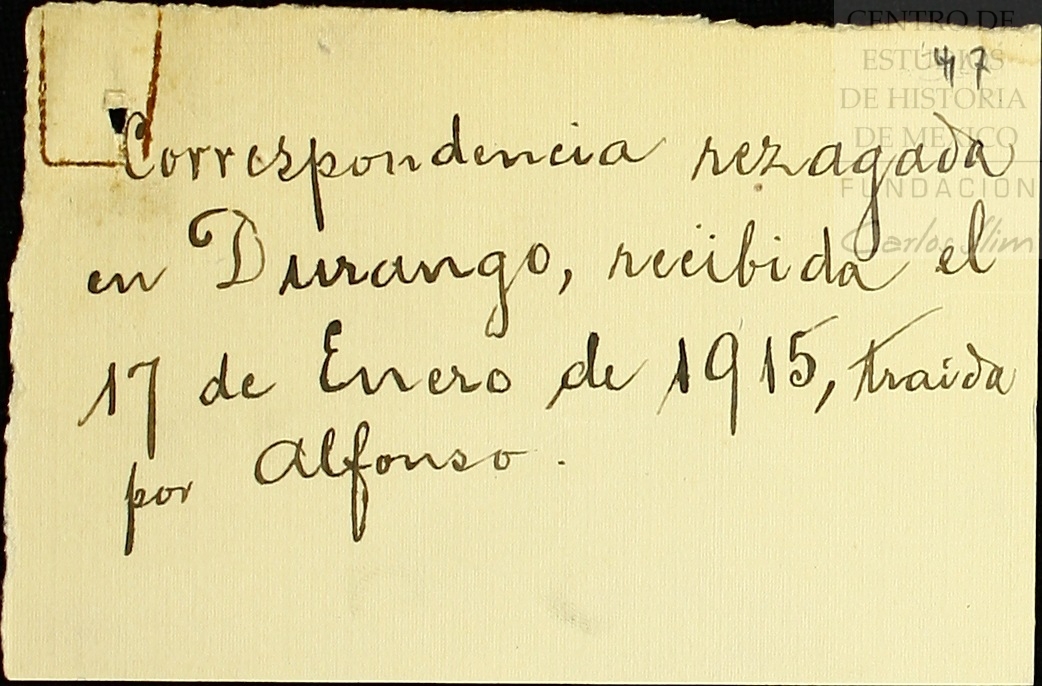 CENTRO DE
ESTUDIOS
DE HISTORIA
DE MEXICO
FUNDACIÓN
Carlos Slim
47
Correspondencia rezagada
en Durango, recibida el
17 de Enero de 1915, traida
por Alfonso.